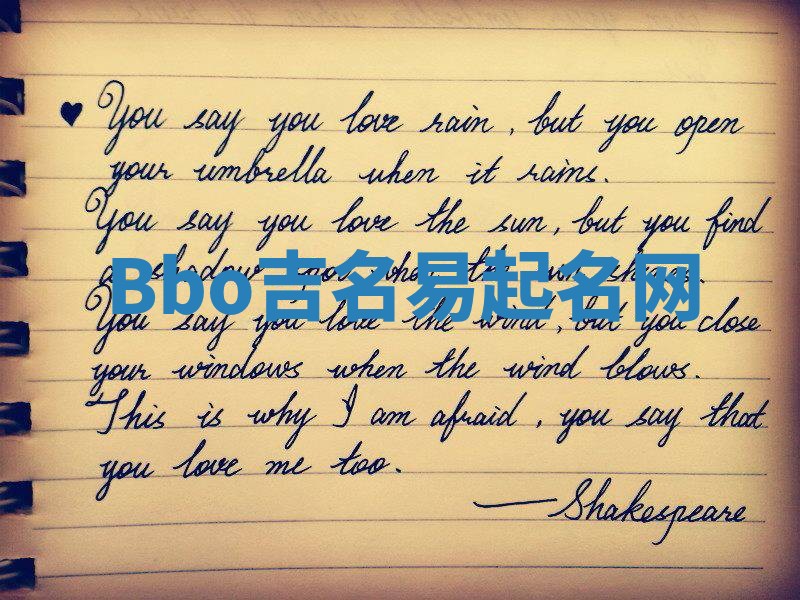 ♥ You say you love rain, but you open
your umbrella when it rains.
You say you love the sun, but you find
a shadow spot when the sun shines.
Bbo吉名易起名网
You say you love the wind, but you close
your windows when the wind blows.
This is why I am afraid, you say that
you love me too.
—Shakespeare